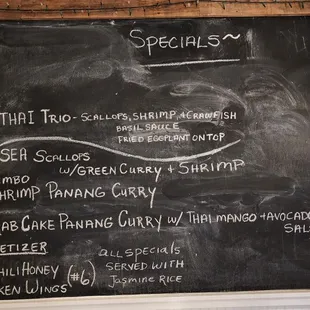 SPECIALS~
THAI TRIO - SCALLOPS, SHRIMP, + CRAWFISH
BASIL SAUCE
FRIED EGGPLANT ON TOP
SEA SCALLOPS
W/ GREEN CURRY + SHRIMP
MBO
HRIMP PANANG CURRY
AB CAKE PANANG CURRY W/ THAI MANGO + AVOCADO
SALS
ETIZER
HILI HONEY (#6)
KEN WINGS
ALL SPECIALS
SERVED WITH
JASMINE RICE